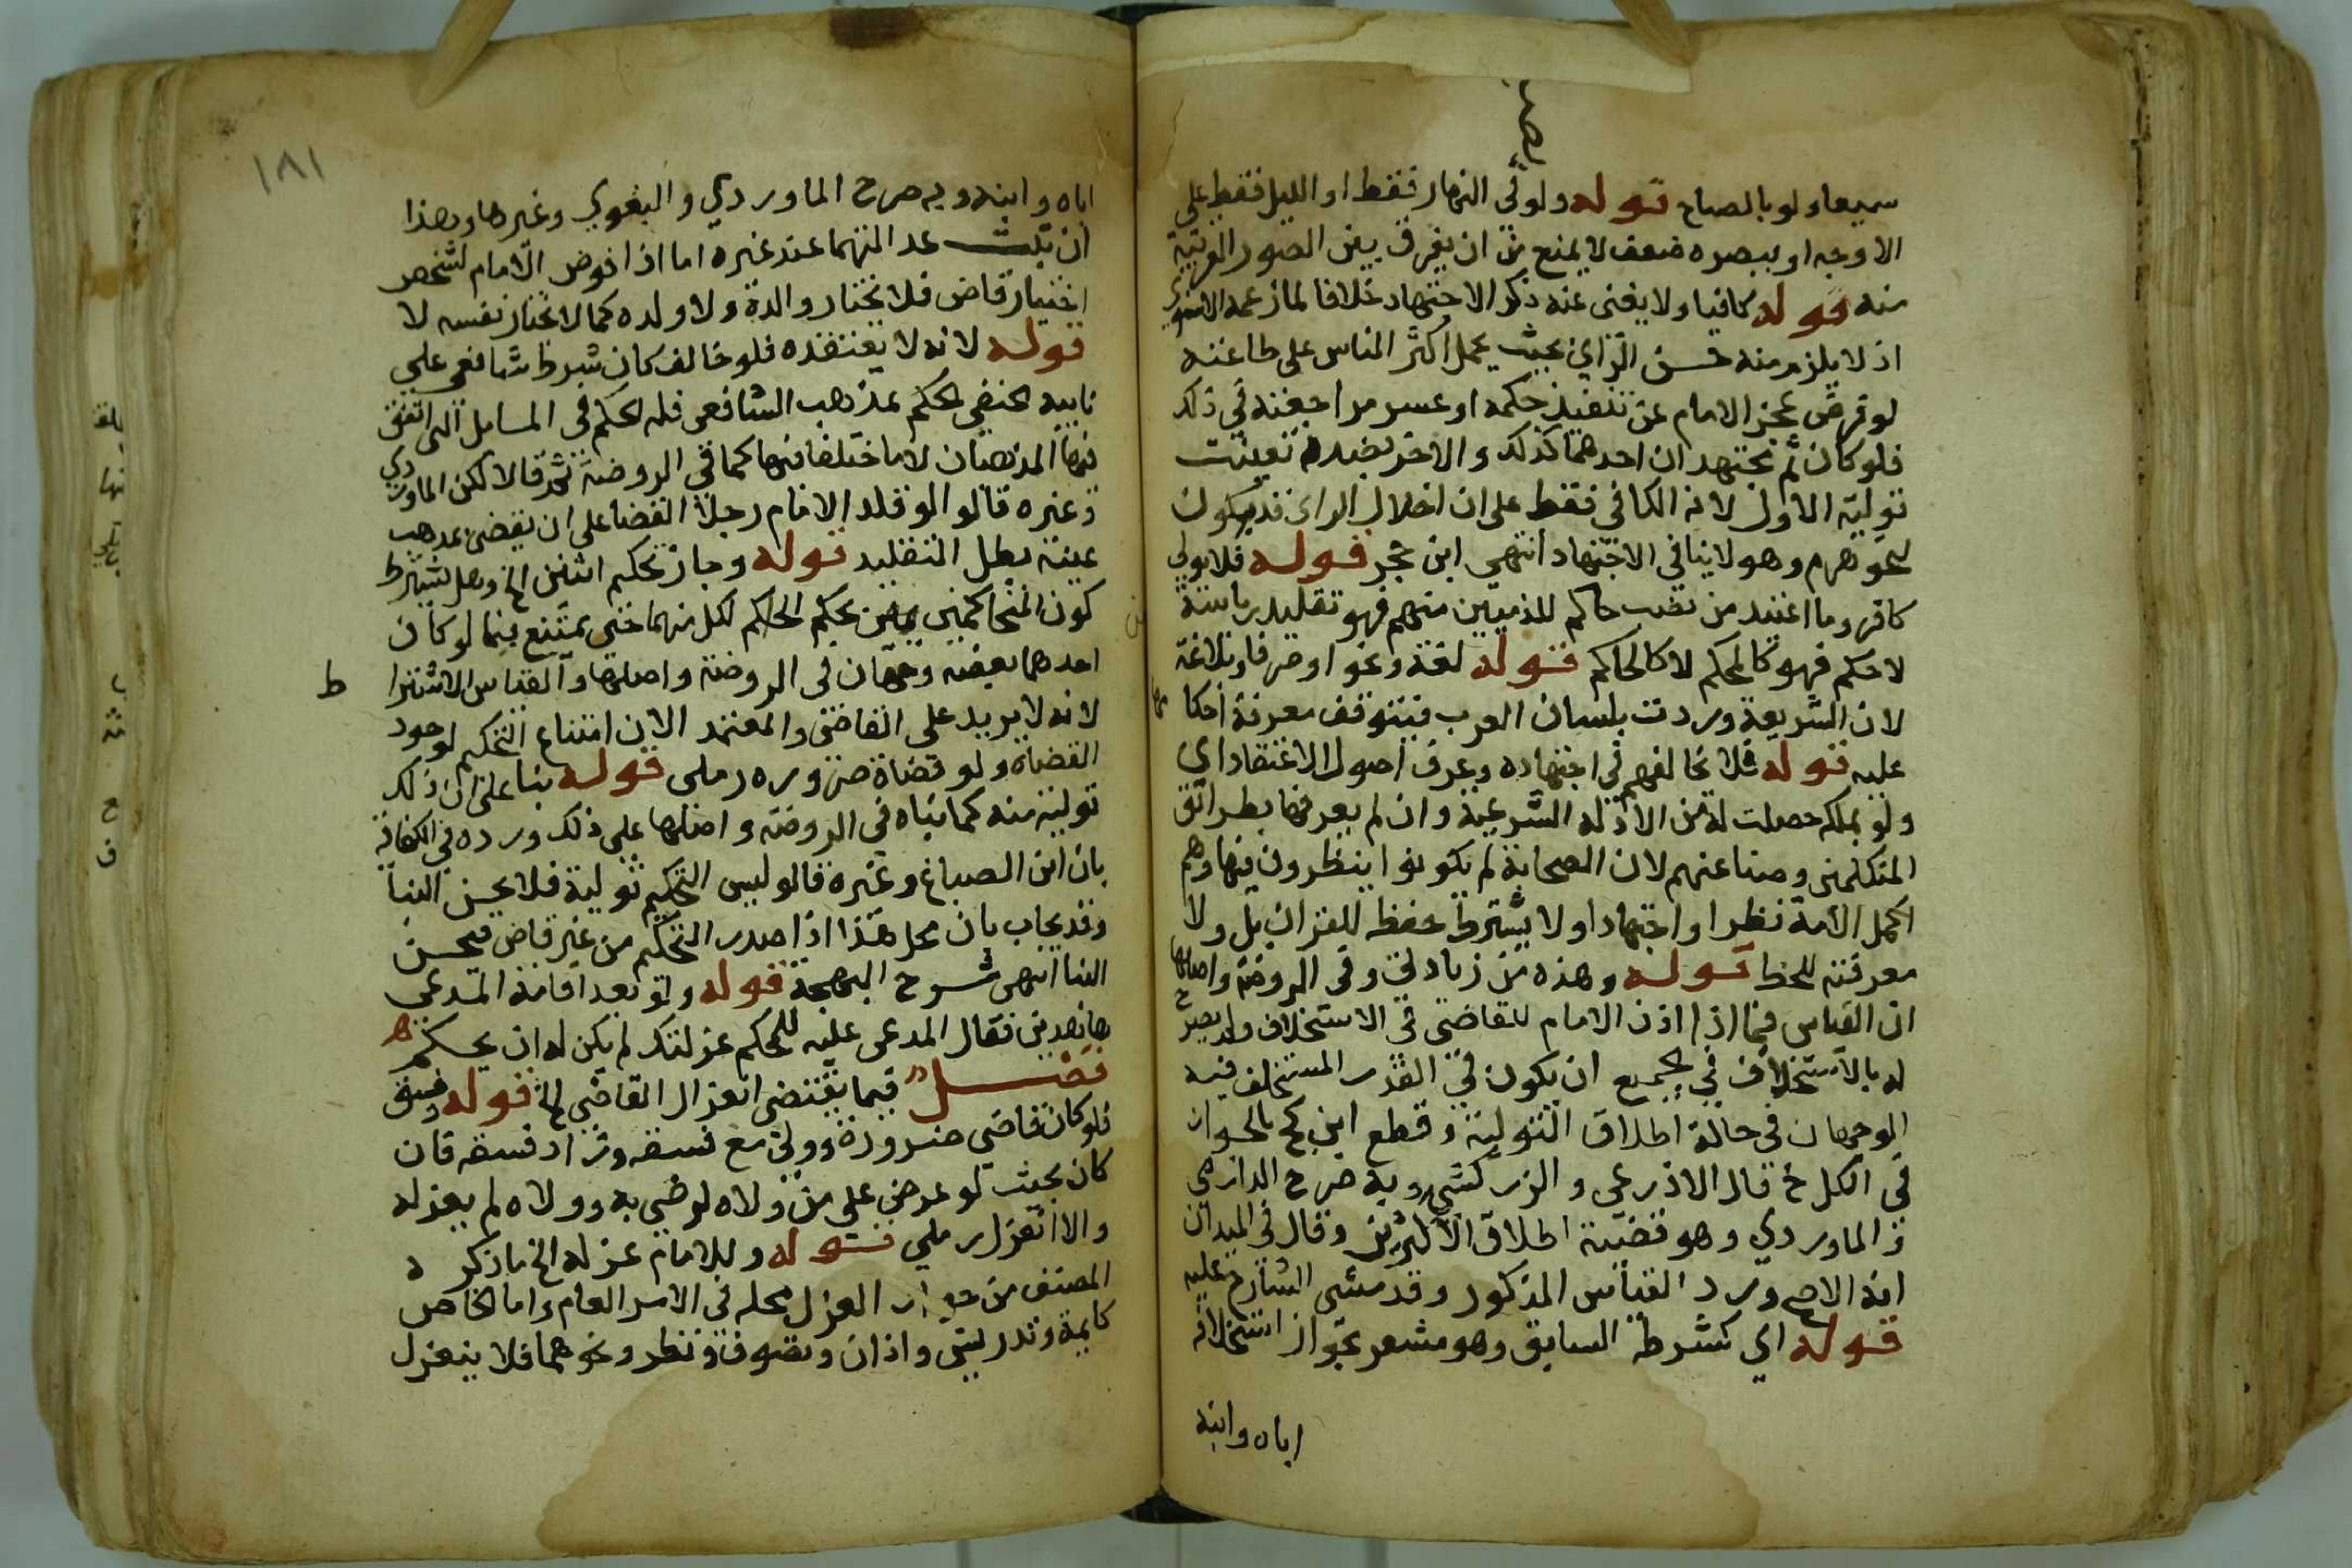 سميعا ولو بالصياح قوله ولو في النهار فقط او الليل فقط على
الاوجه او ببصره ضعف لا يمنع من ان يفرق بين الصور القريبة
منه قوله كافيا ولا يغنى عنه ذكر الاجتهاد خلافا لما زعمه الاسنوي
اذ لا يلزم منه حسن الراي بحيث يحمل اكثر الناس على طاعته
لو فرض عجز الامام عن تنفيذ حكمه او عسر مراجعته في ذلك
فلو كان ثم مجتهدان احدهما كذلك والاخر بضده تعينت
تولية الاول لانه الكافي فقط على ان اختلال الراى قد يكون
لنحو هرم وهو لا ينافي الاجتهاد انتهى ابن حجر قوله فلا يولي
كافر وما اعتيد من نصب حاكم للذميين منهم فهو تقليد رياسة
لا حكم فهو كالمحكم لا كالحاكم قوله لغة ونحوا وصرفا وبلاغة
لان الشريعة وردت بلسان العرب فيتوقف معرفة احكا مها
عليه قوله فلا يخالفهم في اجتهاده وعرف اصول الاعتقاد اى
ولو بملكة حصلت له من الادلة الشرعية وان لم يعرفها بطرائق
المتكلمين وصناعتهم لان الصحابة لم يكونوا ينظرون فيها وهم
اكمل الامة نظرا واجتهادا ولا يشترط حفظه للقران بل ولا
معرفته للخط قوله وهذه من زيادتي وفي الروضة واصلها
ان القياس فيما اذا اذن الامام للقاضي في الاستخلاف ولم يصرح
له بالاستخلاف في الجميع ان يكون في القدر المستخلف فيه
الوجهان في حالة اطلاق التولية وقطع ابن كج بالجواز
في الكل خ قال الاذرعي والزركشي وبه صرح الدارمي
و الماوردي وهو قضية اطلاق الاكثرين وقال في الميدان
انه الاصح ورد القياس المذكور وقد مشى الشارح عليه
قوله اى كشرطه السابق وهو مشعر بجواز استخلافه
اباه وابنه
١٨١
اباه وابنه وبه صرح الماوردي والبغوي وغيرهما وهذا
ان ثبتت عدالتهما عند غيره اما اذا فوض الامام لشخص
اختيار قاض فلا يختار والده ولا ولده كما لا يختار نفسه لا
قوله لانه لا يعتقده فلو خالف كان شرط شافعي على
نايبه الحنفي الحكم بمذهب الشافعي فله الحكم في المسايل التى اتفق
فيها المذهبان لا ما اختلفا فيها كما في الروضة ثم قالا لكن الماوردي
وغيره قالوا لو قلد الامام رجلا القضا على ان يقضى بمذهب
عينه بطل التقليد قوله وجاز تحكيم اثنين الخ وهل يشترط
كون المتحاكمين ممن يحكم الحاكم لكل منهما حتى يمتنع فيما لو كان
احدهما بعضه وجهان في الروضة واصلها والقياس الاشترا ط
لانه لا يزيد على القاضى والمعتمد الان امتناع التحكيم لوجود
القضاة ولو قضاة ضرورة رملى قوله بنا على ان ذلك
تولية منه كما بناه في الروضة واصلها على ذلك ورده في الكفاية
بان ابن الصباغ وغيره قالوا ليس التحكيم تولية فلا يحسن البنا
وقد يجاب بان محل هذا اذا صدر التحكيم من غير قاض فيحسن
البنا انتهى شرح البهجة قوله ولو بعد اقامة المدعي
شاهدين فقال المدعى عليه للمحكم عزلتك لم يكن له ان يحكم
فصل فيما يقتضى انعزال القاضي الخ قوله وفسق
فلو كان قاضى ضرورة وولى مع فسقه وزاد فسقه فان
كان بحيث لو عرض على من ولاه لرضي به وولاه لم يعزله
والا انعزل رملي قوله وللامام عزله الخ ما ذكره
المصنف من جواز العزل محله في الامر العام واما الخاص
كامامة وتدريس واذان وتصوف ونظر ونحوهما فلا ينعزل